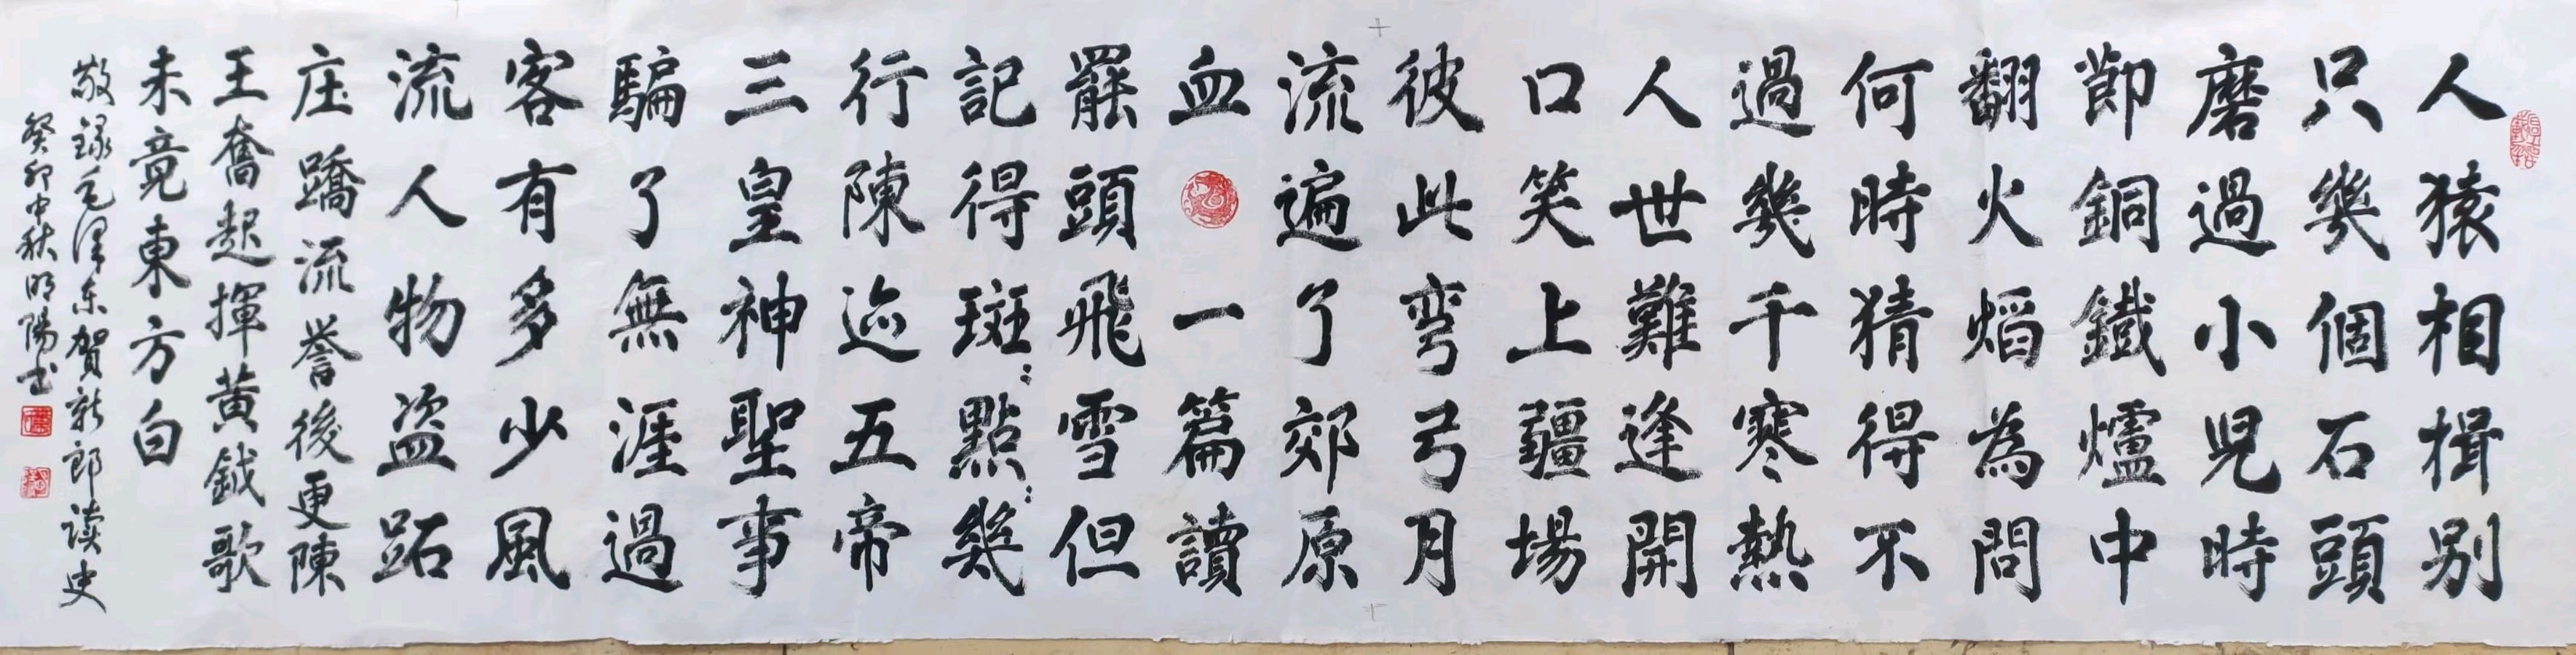 人猿相揖别
只幾個石頭
磨過小兒時
節銅鐵爐中
翻火焰為問
何時猜得不
過幾千寒熱
人世難逢開
口笑上疆場
彼此彎弓月
流遍了郊原
血一篇讀
罷頭飛雪但
記得斑:點:幾
行陳迹五帝
三皇神聖事
騙了無涯過
客有多少風
流人物盗跖
庄蹻流誉後更陳
王奮起揮黄鉞歌
未竟東方白
敬録毛泽东賀新郎读史
癸卯中秋明陽书